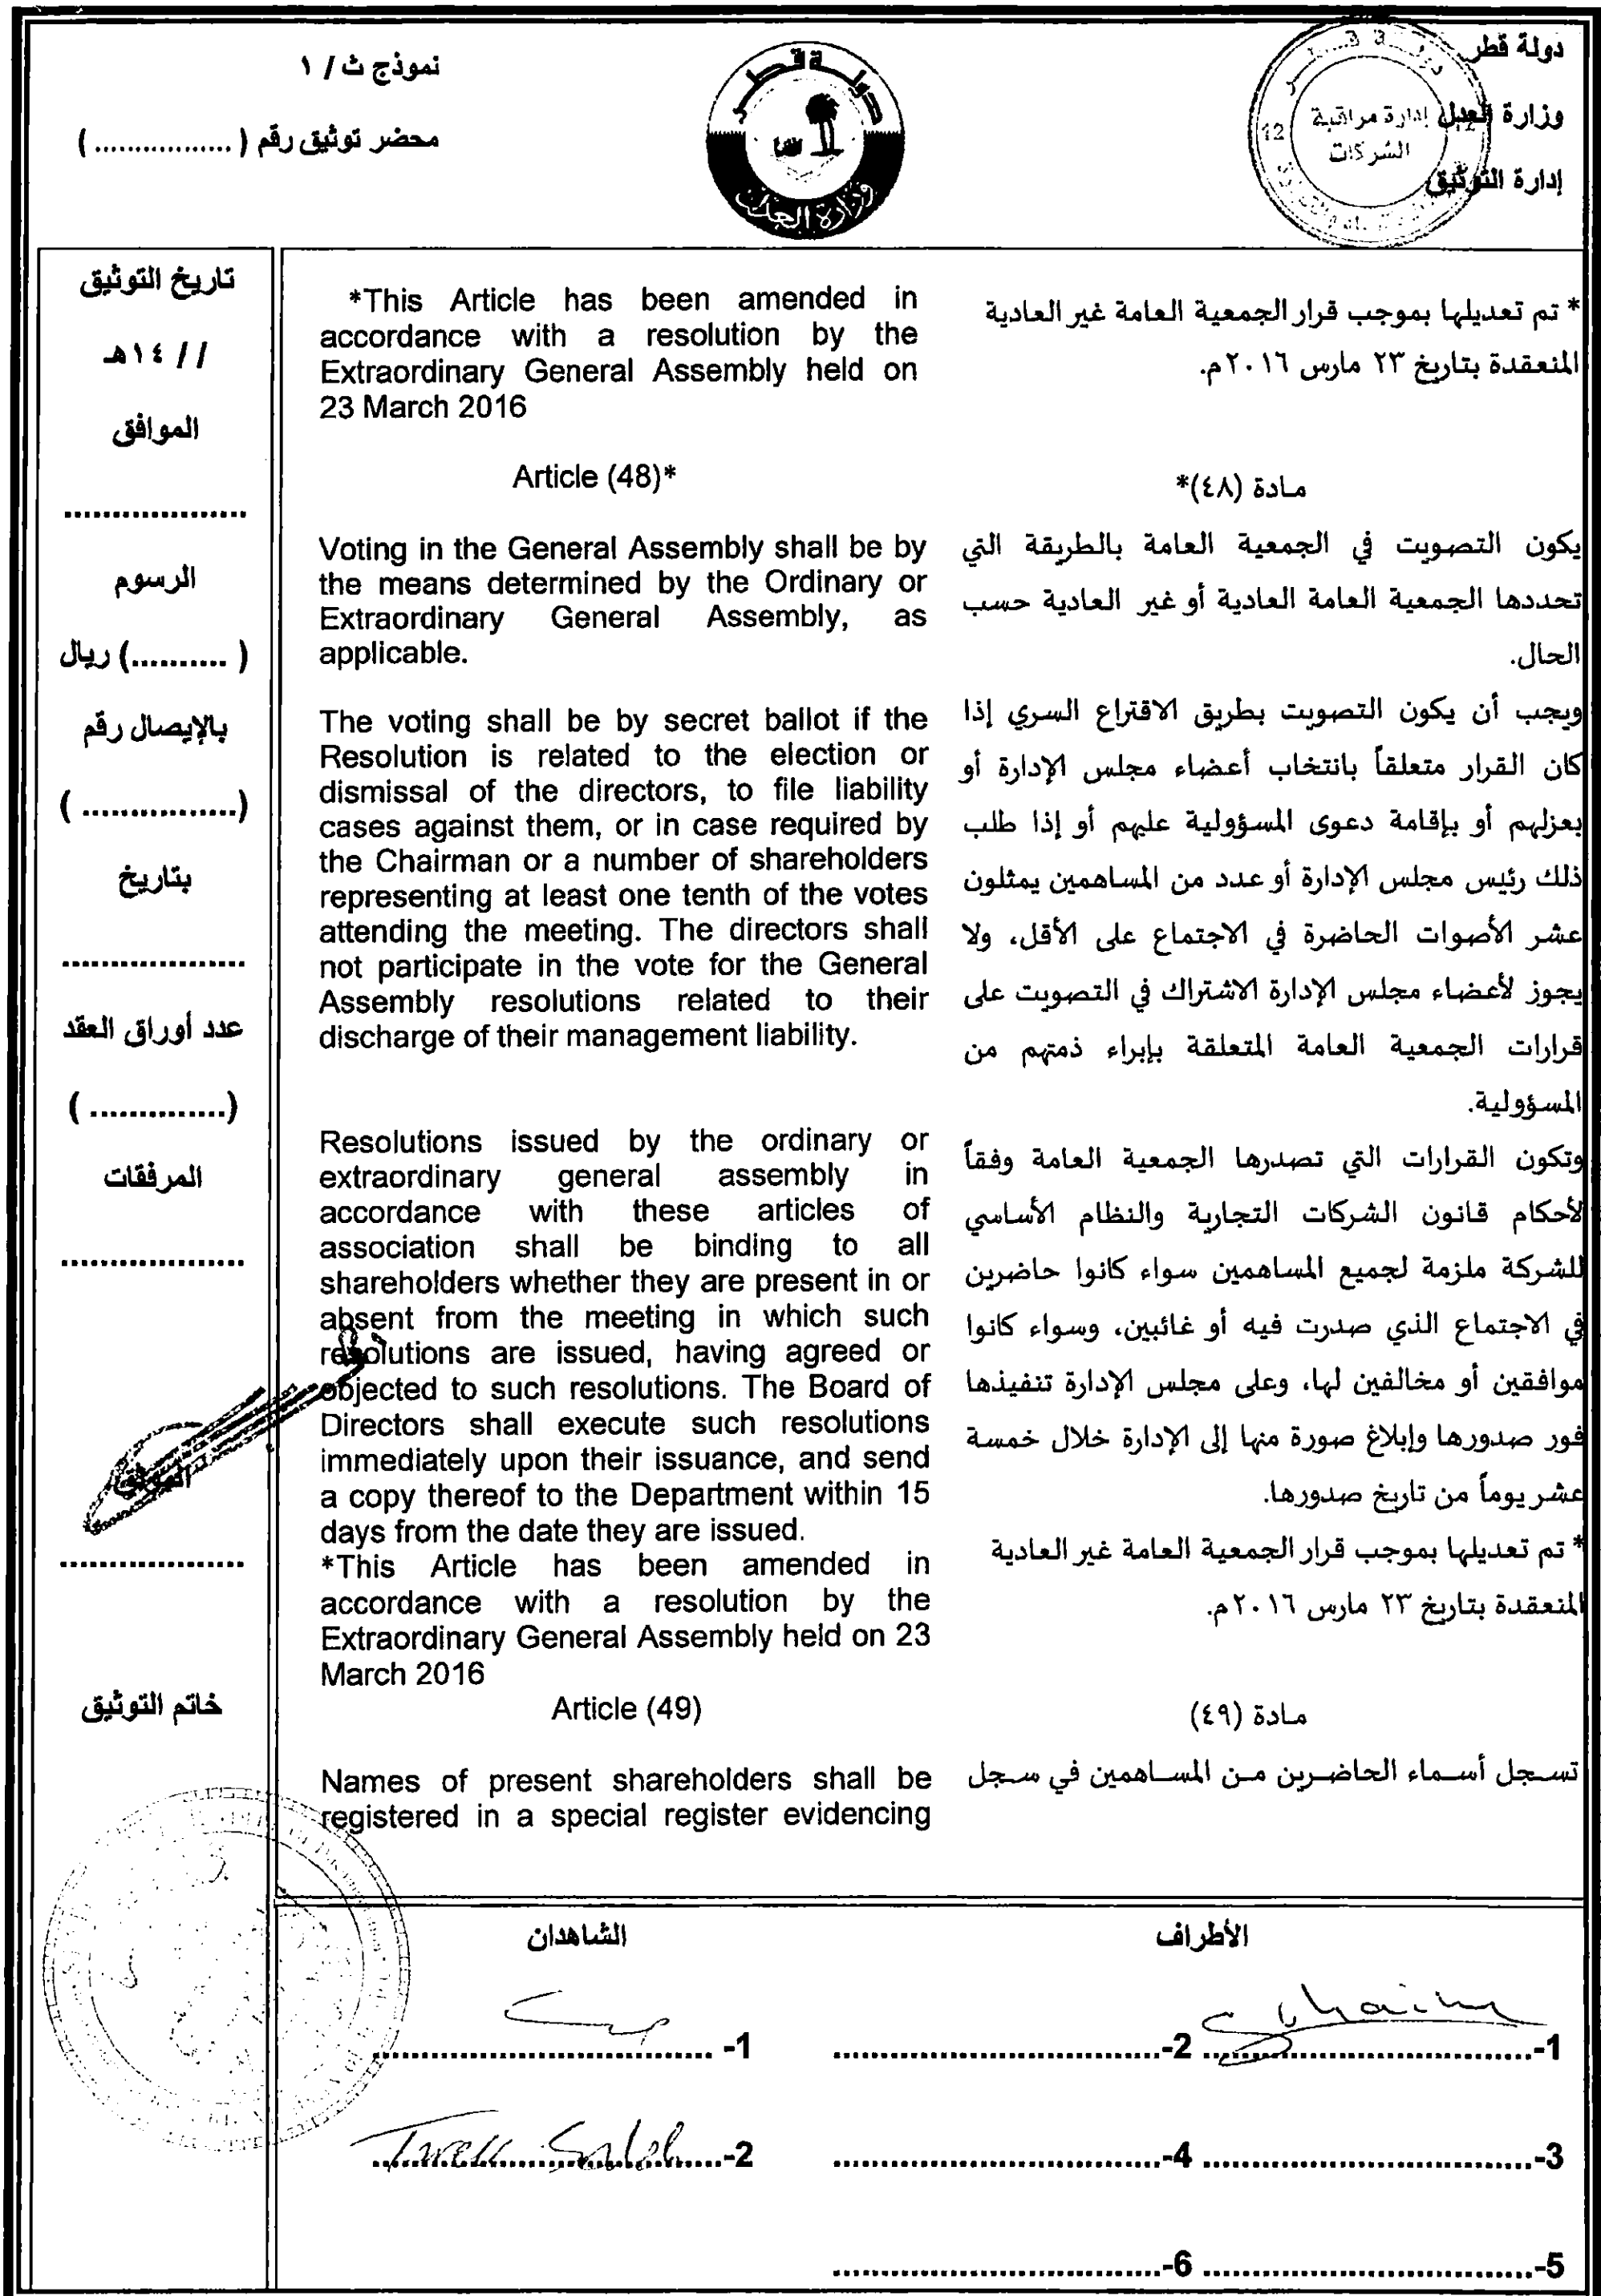 دولة قطر
وزارة العدل
إدارة التوثيق
إدارة مراقبة
الشركات
12
دولة قطر
وزارة العدل
نموذج ث / ١
محضر توثيق رقم ( ................ )
* تم تعديلها بموجب قرار الجمعية العامة غير العادية
المنعقدة بتاريخ ٢٣ مارس ٢٠١٦م.
مادة (٤٨)*
يكون التصويت في الجمعية العامة بالطريقة التي
تحددها الجمعية العامة العادية أو غير العادية حسب
الحال.
ويجب أن يكون التصويت بطريق الاقتراع السري إذا
كان القرار متعلقاً بانتخاب أعضاء مجلس الإدارة أو
بعزلهم أو بإقامة دعوى المسؤولية عليهم أو إذا طلب
ذلك رئيس مجلس الإدارة أو عدد من المساهمين يمثلون
عشر الأصوات الحاضرة في الاجتماع على الأقل، ولا
يجوز لأعضاء مجلس الإدارة الاشتراك في التصويت على
قرارات الجمعية العامة المتعلقة بإبراء ذمتهم من
المسؤولية.
وتكون القرارات التي تصدرها الجمعية العامة وفقاً
لأحكام قانون الشركات التجارية والنظام الأساسي
للشركة ملزمة لجميع المساهمين سواء كانوا حاضرين
في الاجتماع الذي صدرت فيه أو غائبين، وسواء كانوا
موافقين أو مخالفين لها، وعلى مجلس الإدارة تنفيذها
فور صدورها وإبلاغ صورة منها إلى الإدارة خلال خمسة
عشر يوماً من تاريخ صدورها.
* تم تعديلها بموجب قرار الجمعية العامة غير العادية
المنعقدة بتاريخ ٢٣ مارس ٢٠١٦م.
مادة (٤٩)
تسجل أسماء الحاضرين من المساهمين في سجل
*This Article has been amended in
accordance with a resolution by the
Extraordinary General Assembly held on
23 March 2016
Article (48)*
Voting in the General Assembly shall be by
the means determined by the Ordinary or
Extraordinary General Assembly, as
applicable.
The voting shall be by secret ballot if the
Resolution is related to the election or
dismissal of the directors, to file liability
cases against them, or in case required by
the Chairman or a number of shareholders
representing at least one tenth of the votes
attending the meeting. The directors shall
not participate in the vote for the General
Assembly resolutions related to their
discharge of their management liability.
Resolutions issued by the ordinary or
extraordinary general assembly in
accordance with these articles of
association shall be binding to all
shareholders whether they are present in or
absent from the meeting in which such
resolutions are issued, having agreed or
objected to such resolutions. The Board of
Directors shall execute such resolutions
immediately upon their issuance, and send
a copy thereof to the Department within 15
days from the date they are issued.
*This Article has been amended in
accordance with a resolution by the
Extraordinary General Assembly held on 23
March 2016
Article (49)
Names of present shareholders shall be
registered in a special register evidencing
تاريخ التوثيق
/ / ١٤هـ
الموافق
....................
الرسوم
( ..........) ريال
بالإيصال رقم
(................ )
بتاريخ
....................
عدد أوراق العقد
(.............. )
المرفقات
....................
الموثق
....................
خاتم التوثيق
الأطراف
1-.................................... 2-....................................
3-.................................... 4-....................................
5-.................................... 6-....................................
الشاهدان
1- ....................................
2-....................................